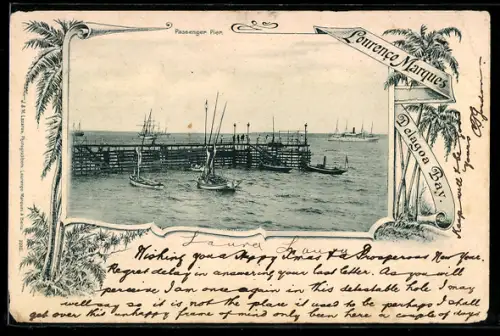 Passenger Pier.
Lourenço Marques
Delagoa Bay.
J. & M. Lazarus, Photographers, Lourenço Marques & Beira
Wishing you a Happy Xmas & a Prosperous New Year.
Regret delay in answering your last letter. As you will
perceive I am once again in this detestable hole I may
well say so it is not the place it used to be perhaps I shall
get over this unhappy frame of mind only been here a couple of days
Kind
yours